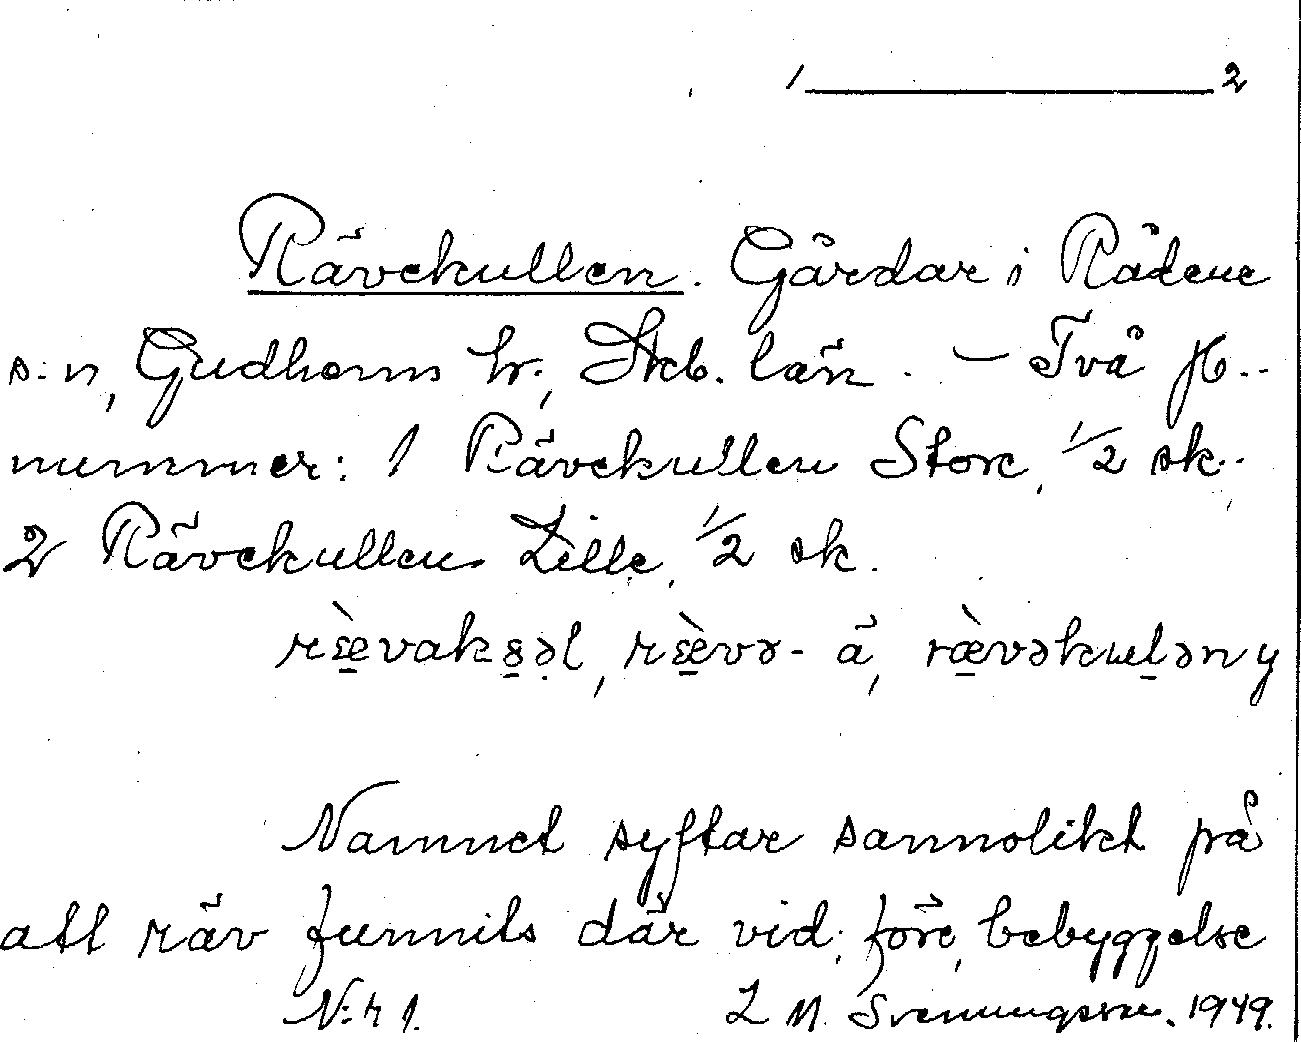 1 ———— 2
Rävekullen. Gårdar i Rådene
s:n, Gudhems hr., Skb. län. — Två
nummer: 1 Rävekullen Store, 1/2 sk.
2 Rävekullen Lille, 1/2 sk.
Namnet syftar sannolikt på
att räv funnits där vid, före, bebyggelse
N:r 1. L M Svenungsson. 1949.